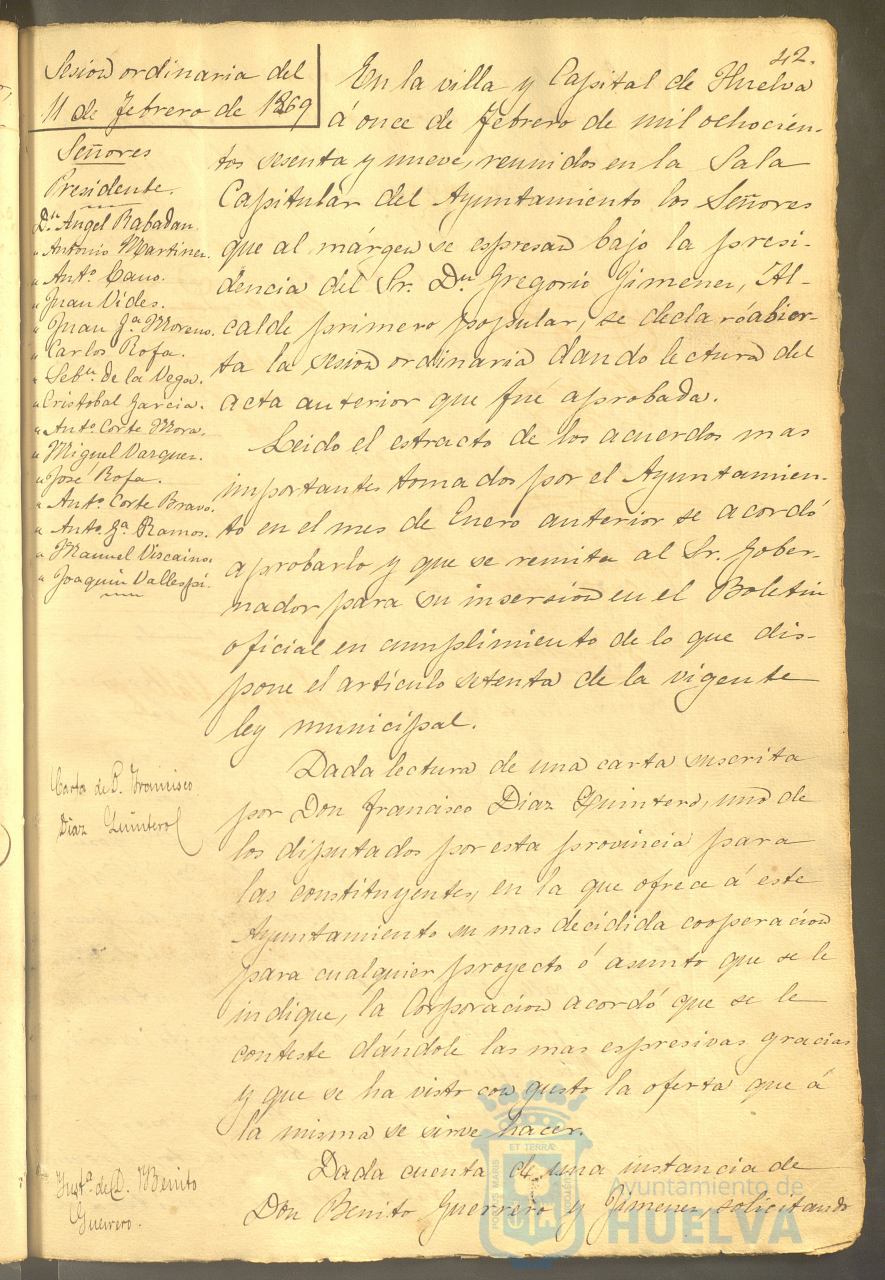 42.
Sesion ordinaria del
11 de Febrero de 1869
Señores
Presidente.
Dn. Angel Rabadan.
" Antonio Martinez.
" Anto. Cano.
" Juan Vides.
" Juan Ga. Moreno.
" Carlos Rofa.
" Sebn. de la Vega.
" Cristobal Garcia.
" Anto. Corte Mora.
" Miguel Vazquez.
" José Rofa.
" Anto. Corte Bravo.
" Anto. Ga. Ramos.
" Manuel Viscaino.
" Joaquin Vallespi.
En la villa y Capital de Huelva
á once de Febrero de mil ochocien-
tos sesenta y nueve, reunidos en la Sala
Capitular del Ayuntamiento los Señores
que al márgen se espresan bajo la presi-
dencia del Sr. Dn. Gregorio Jimenez, Al-
calde primero popular, se declaró abier-
ta la sesion ordinaria dando lectura del
acta anterior que fué aprobada.
Leido el estracto de los acuerdos mas
importantes tomados por el Ayuntamien-
to en el mes de Enero anterior se acordó
aprobarlo y que se remita al Sr. Gober-
nador para su insersion en el Boletin
oficial en cumplimiento de lo que dis-
pone el artículo setenta de la vigente
ley municipal.
Carta de D. Francisco
Diaz Quintero
Dada lectura de una carta suscrita
por Don Francisco Diaz Quintero, uno de
los diputados por esta provincia para
las constituyentes, en la que ofrece á este
Ayuntamiento su mas decidida cooperacion
para cualquier proyecto ó asunto que se le
indique, la Corporacion acordó que se le
conteste dándole las mas espresivas gracias
y que se ha visto con gusto la oferta que á
la misma se sirve hacer.
Insta. de D. Benito
Guerrero.
Dada cuenta de una instancia de
Don Benito Guerrero y Jimenez, solicitando
PORTUS MARIS ET TERRÆ CUSTODIA
Ayuntamiento de
HUELVA